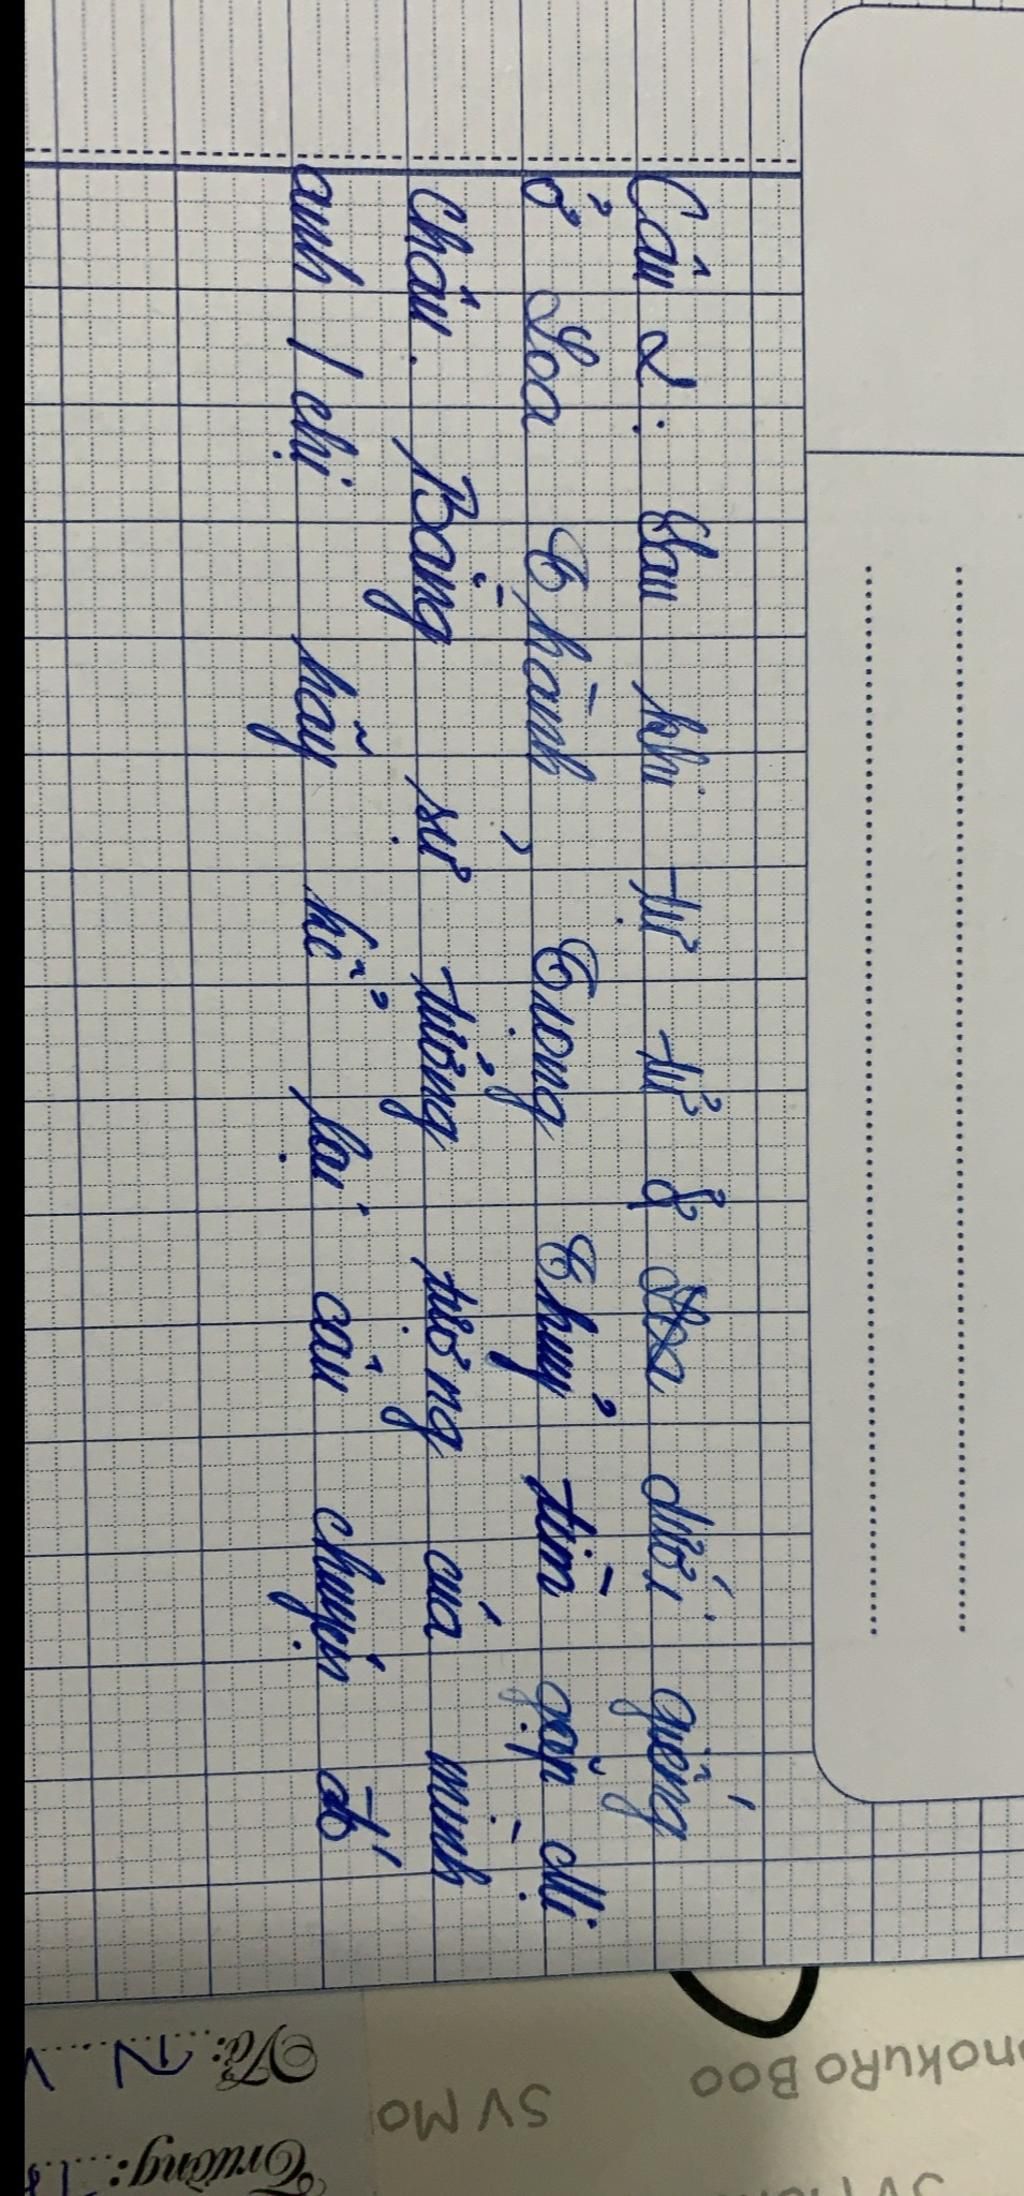 Câu 2: Sau khi tự tử ở dưới giếng
ở Loa Thành, Trọng Thuỷ tìn gặp Mị
Châu. Bằng sự tưởng tượng cuả mình
anh / chị hãy kể lại câu chuyện đó
Tổ: N
Trường:
onokuRo Boo
SV Mo